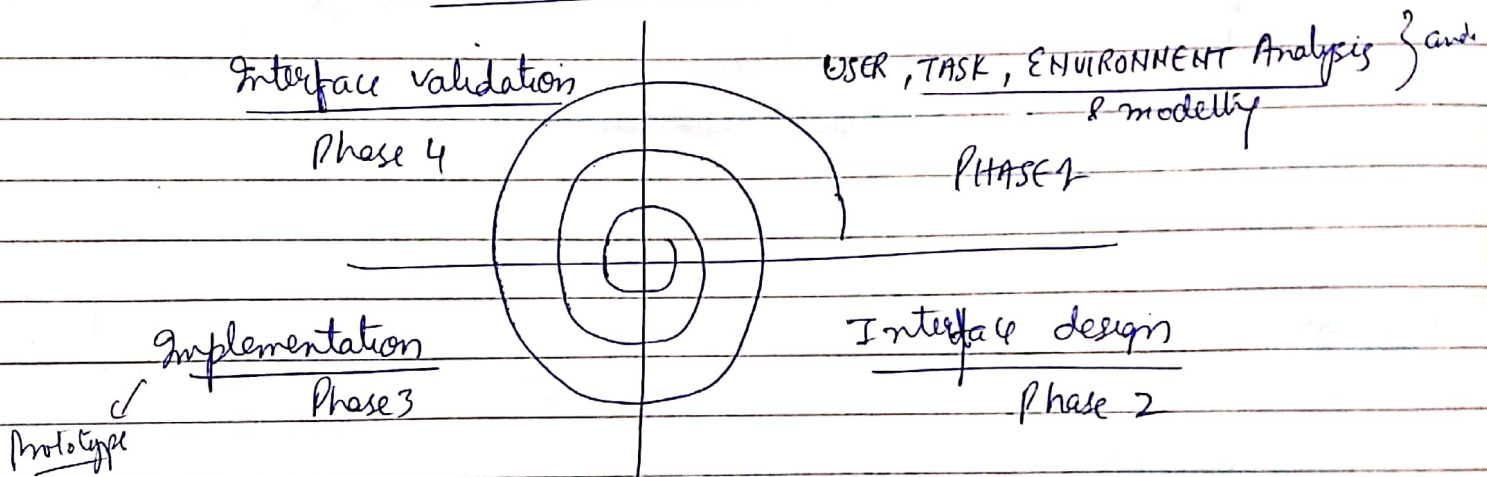 Interface validation
Phase 4
USER, TASK, ENVIRONMENT Analysis } and
& modelling
PHASE 1
Implementation
Phase 3
Prototype
Interface design
Phase 2